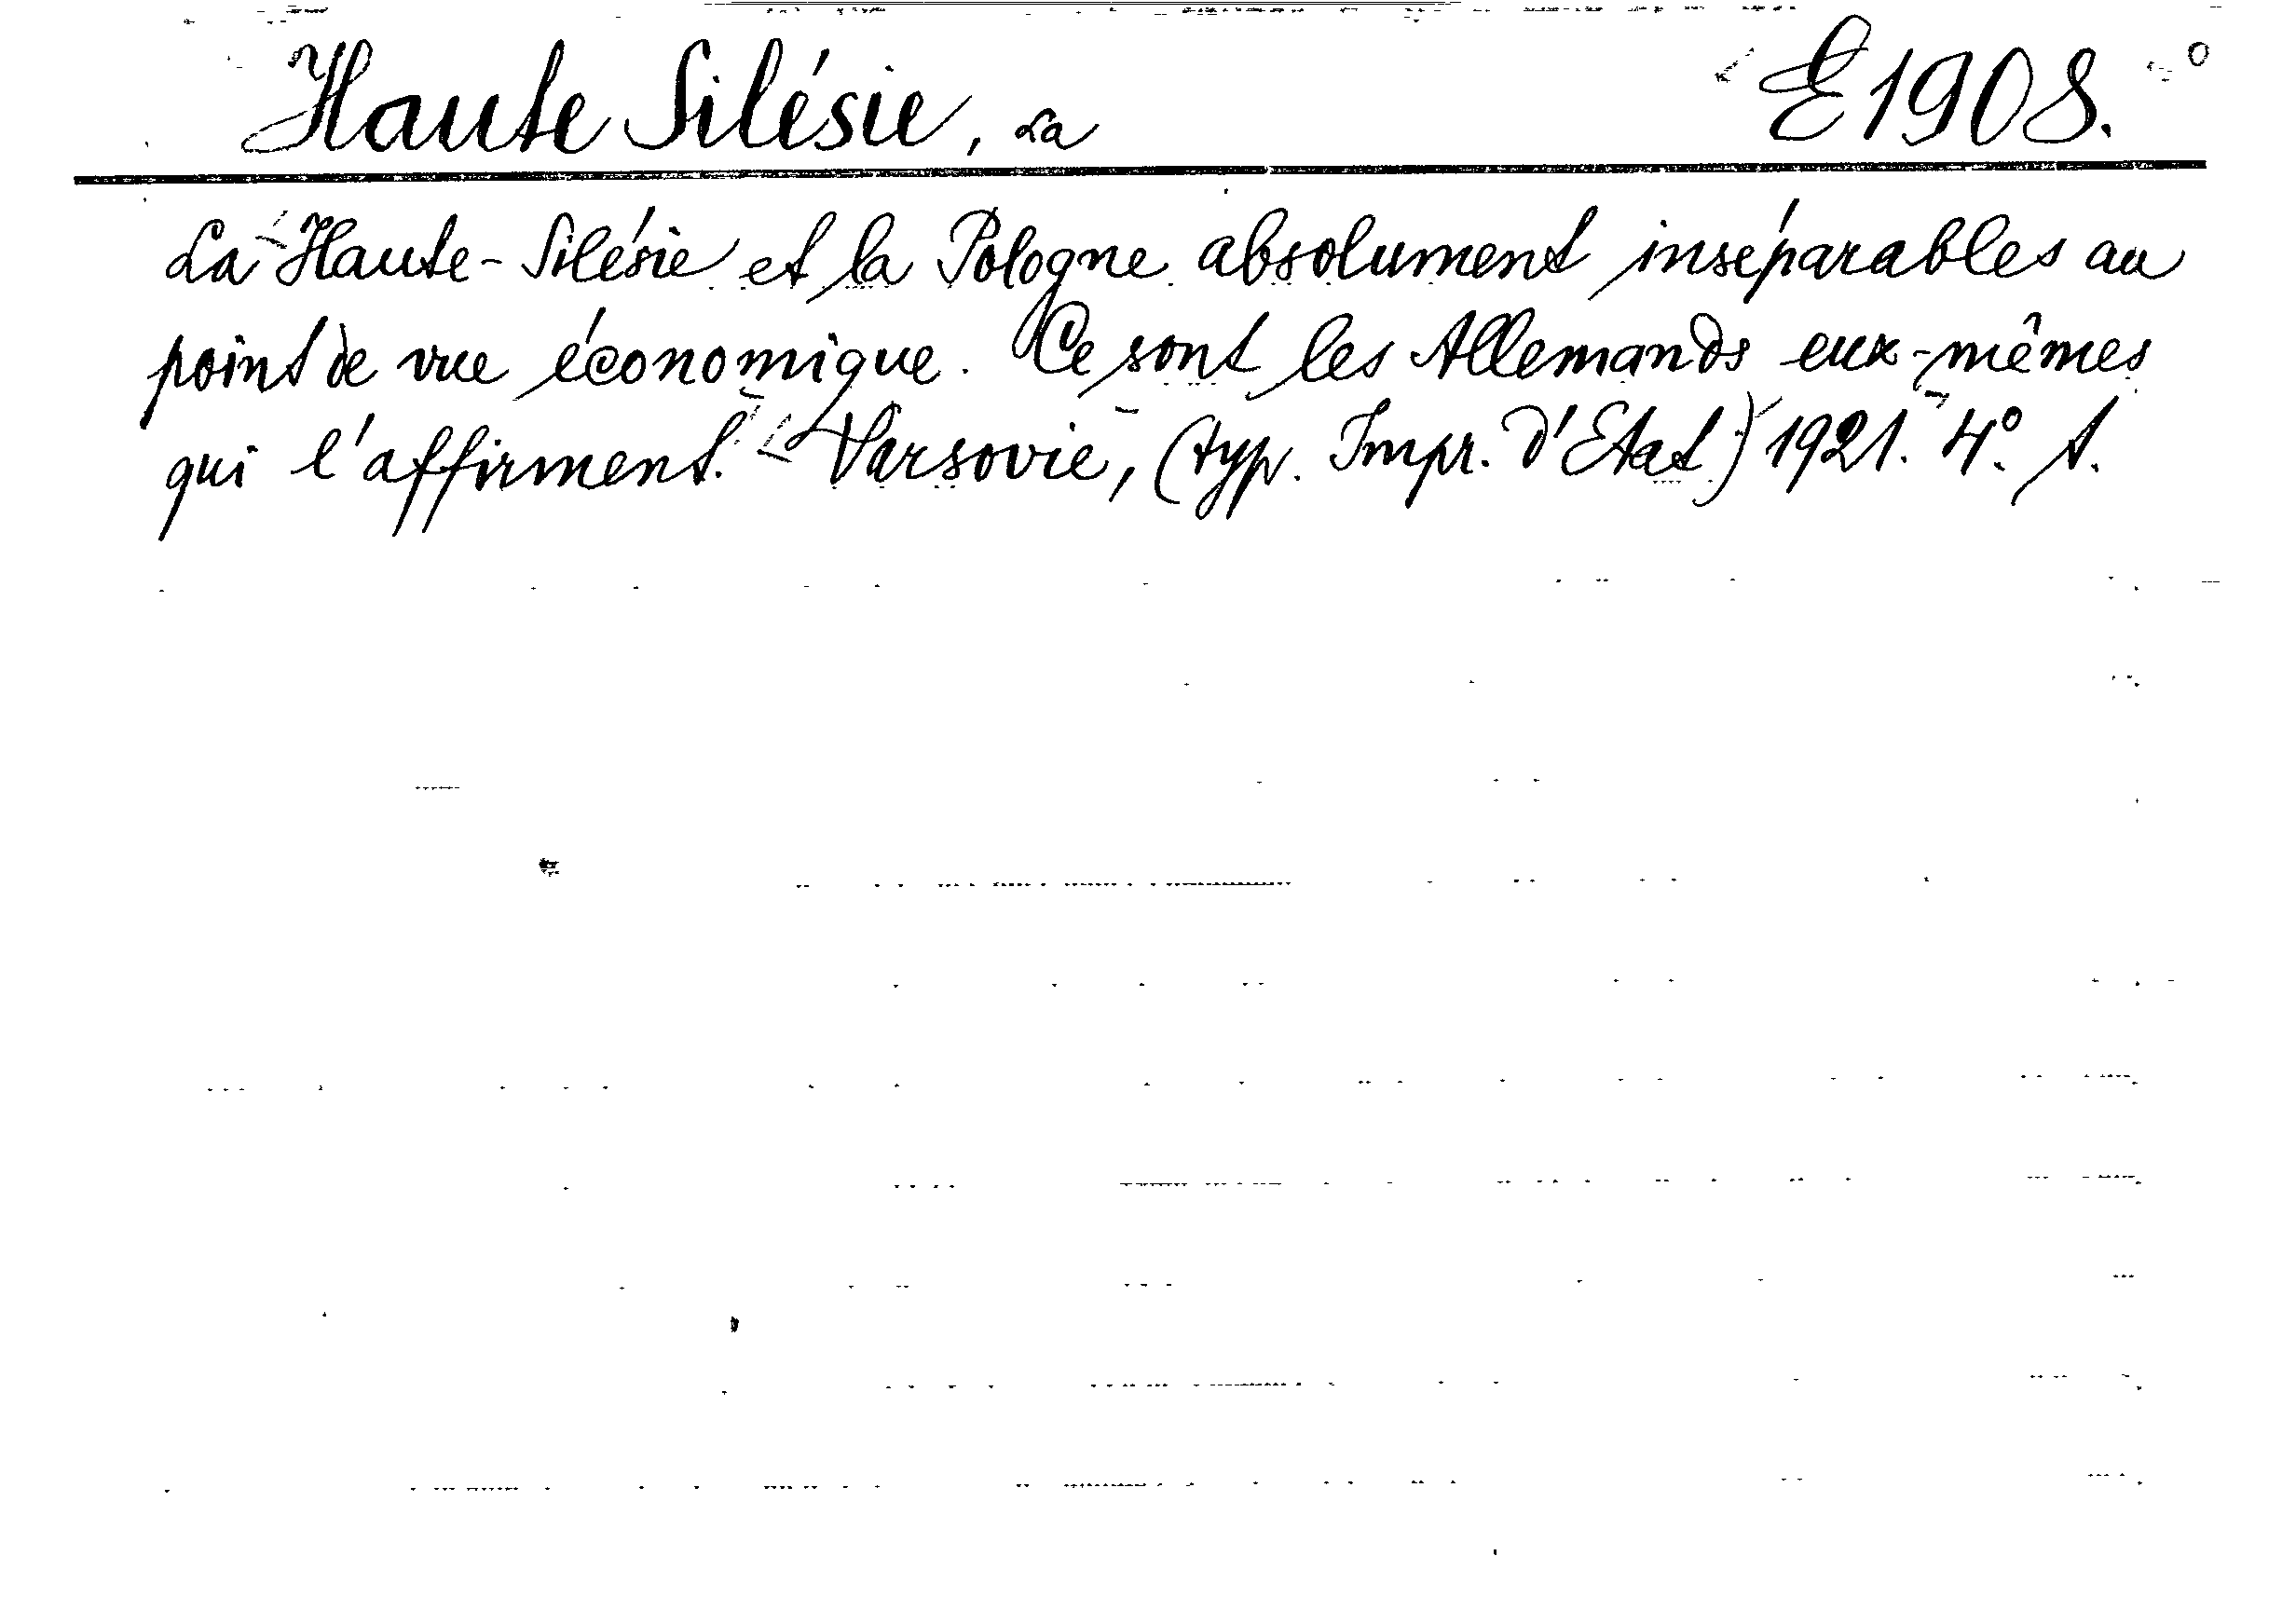 Haute Silésie, La E1908.
La Haute-Silésie et la Pologne absolument inséparables au
point de vue économique. Ce sont les Allemands eux-mêmes
qui l'affirment. Varsovie, (typ. Impr. d'Etat) 1921. 4°.